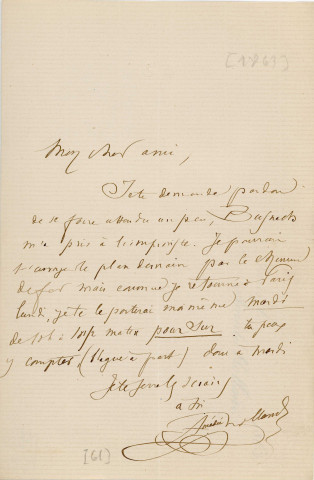 [1861]
Mon cher ami,
Je te demande pardon
de te faire attendre un peu,
m'a pris à l'improviste. Je pourrais
t'envoyer le plan demain par le chemin
de fer mais comme je retourne à Paris
lundi, je te le porterai moi même mardi
de matin pour sur tu peux
y compter donc à mardi
Je te serre les mains
à toi
[61]